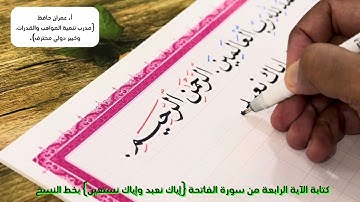 أ. عمران حافظ
(مدرب تنمية المواهب والقدرات،
وخبير دولي محترف).
رب العالمين الرحمن الرحيم
إياك نعبد
كتابة الآية الرابعة من سورة الفاتحة {إياك نعبد وإياك نستعين} بخط النسخ